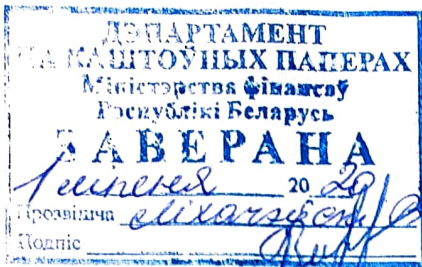 ДЭПАРТАМЕНТ
ПА КАШТОЎНЫХ ПАПЕРАХ
Міністэрства фінансаў
Рэспублікі Беларусь
ЗАВЕРАНА
1 ліпеня 20 20
Прозвішча
Подпіс